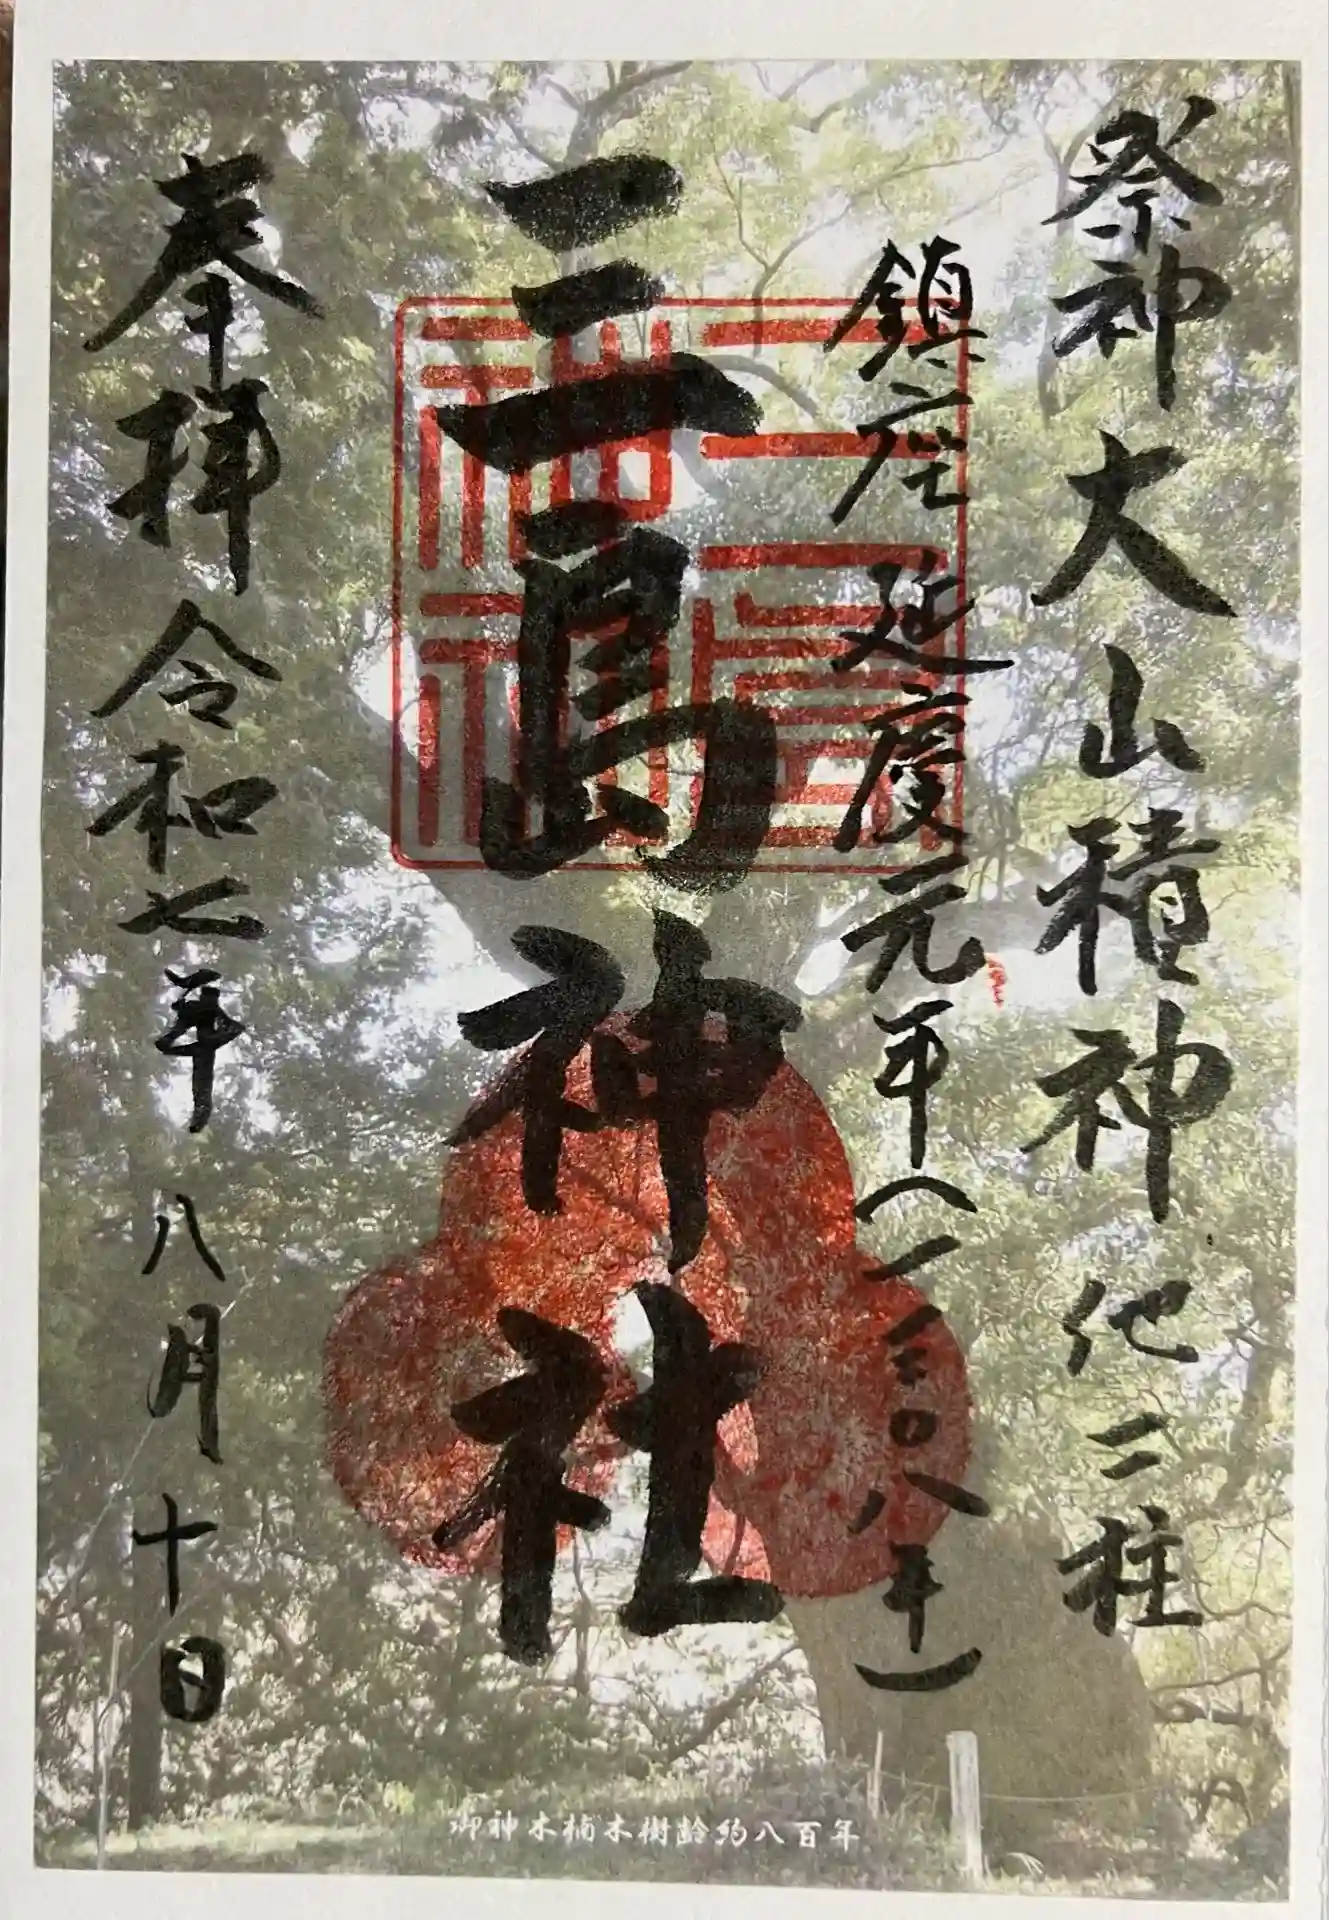 祭神大山積神他二柱
鎮座 延慶元年(一三〇八年)
三島神社
三島神社
奉拝 令和七年八月十日
御神木楠木樹齢約八百年